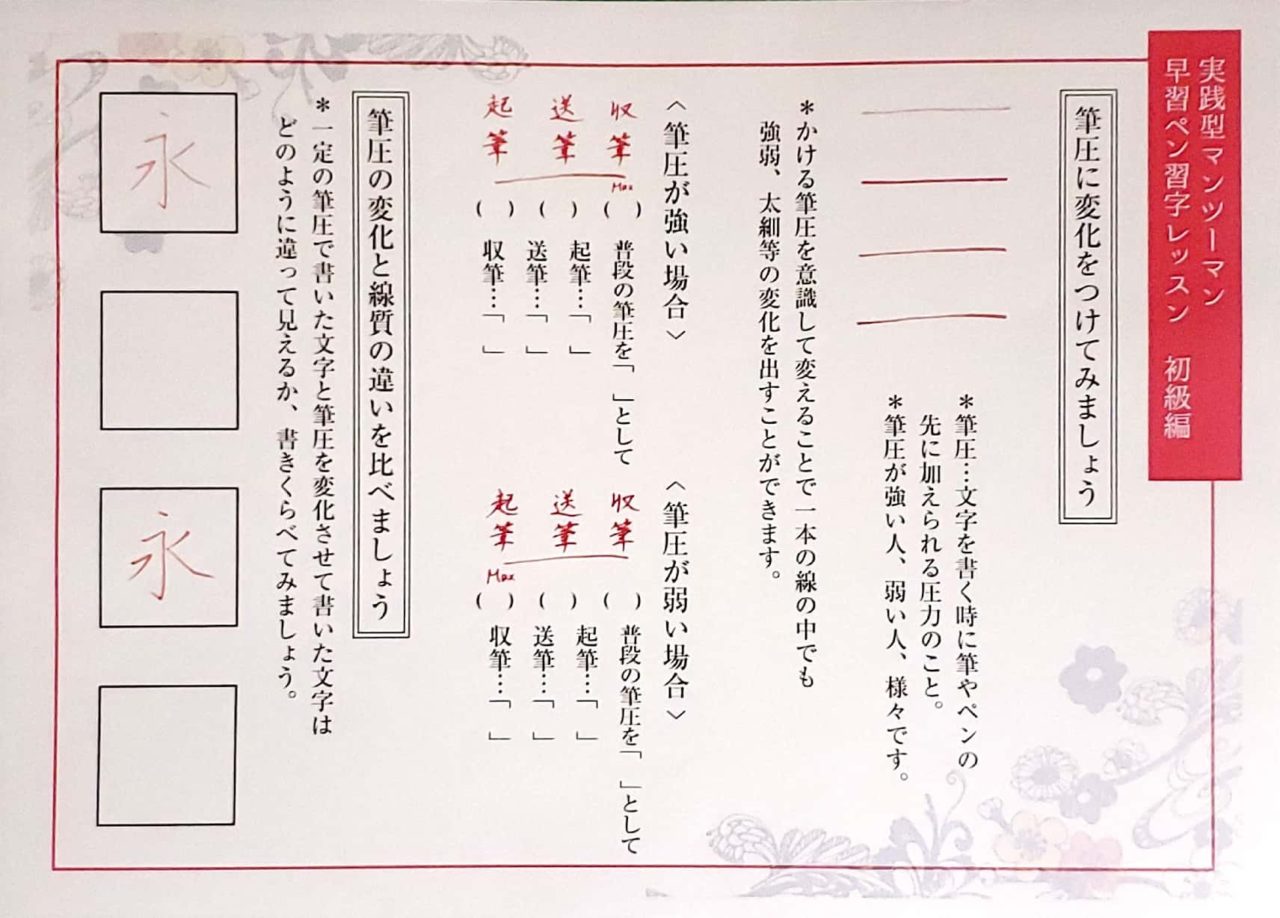 実践型マンツーマン
早習ペン習字レッスン 初級編
筆圧に変化をつけてみましょう
＊筆圧…文字を書く時に筆やペンの
先に加えられる圧力のこと。
＊筆圧が強い人、弱い人、様々です。
＊かける筆圧を意識して変えることで一本の線の中でも
強弱、太細等の変化を出すことができます。
〈筆圧が強い場合〉
収筆
送筆
起筆
Max
( ) ( ) ( )
普段の筆圧を「 」として
起筆…「 」
送筆…「 」
収筆…「 」
〈筆圧が弱い場合〉
収筆
送筆
起筆
Max
( ) ( ) ( )
普段の筆圧を「 」として
起筆…「 」
送筆…「 」
収筆…「 」
筆圧の変化と線質の違いを比べましょう
＊一定の筆圧で書いた文字と筆圧を変化させて書いた文字は
どのように違って見えるか、書きくらべてみましょう。
永
永